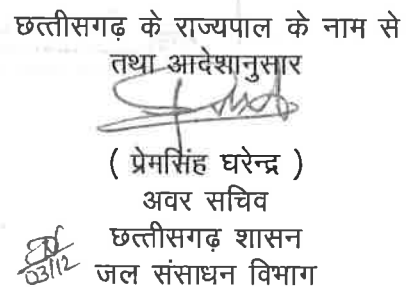 छत्तीसगढ़ के राज्यपाल के नाम से
तथा आदेशानुसार
( प्रेमसिंह घरेन्द्र )
अवर सचिव
छत्तीसगढ़ शासन
जल संसाधन विभाग
03/12